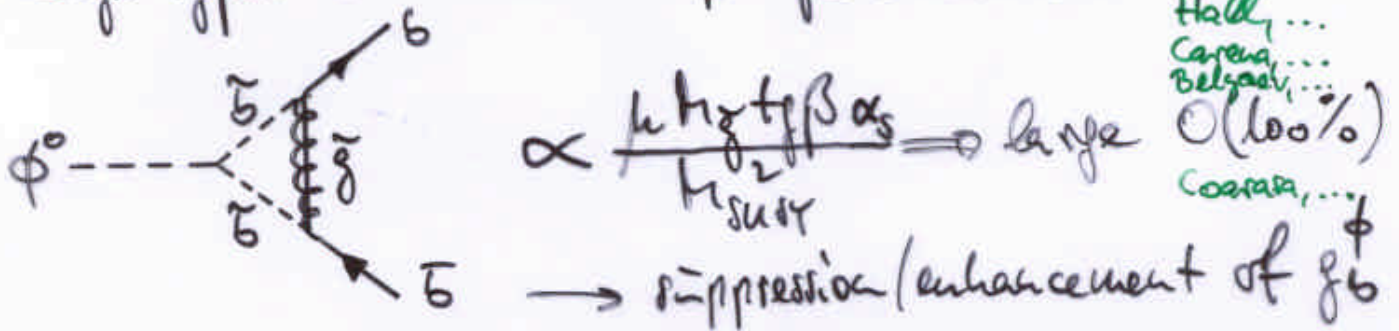 Hall, ...
Carena, ...
b
b̃
Φ⁰ g̃ ∝ μ M_g̃ tgβ α_s / M²_SUSY ⟹ large O(100%)
Coarasa, ...
b̃
b̄ → suppression/enhancement of g_b^Φ